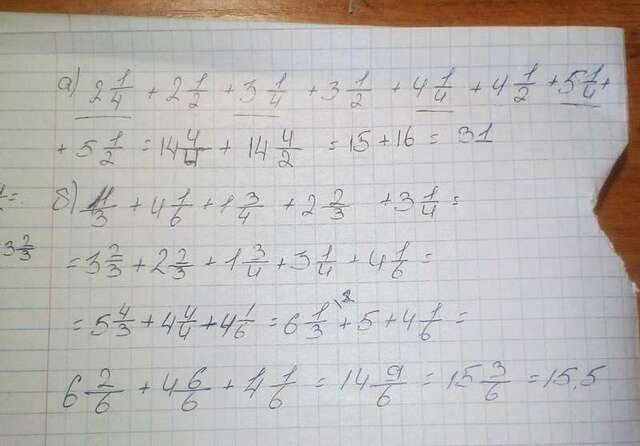 а) 2 1/4 + 2 1/2 + 3 1/4 + 3 1/2 + 4 1/4 + 4 1/2 + 5 1/4 +
+ 5 1/2 = 14 4/4 + 14 4/2 = 15 + 16 = 31
б) 11/3 + 4 1/6 + 1 3/4 + 2 2/3 + 3 1/4 =
= 3 2/3 + 2 2/3 + 1 3/4 + 3 1/4 + 4 1/6 =
3 2/3
= 5 4/3 + 4 4/4 + 4 1/6 = 6 1/3 \2 + 5 + 4 1/6 =
6 2/6 + 4 6/6 + 4 1/6 = 14 9/6 = 15 3/6 = 15,5